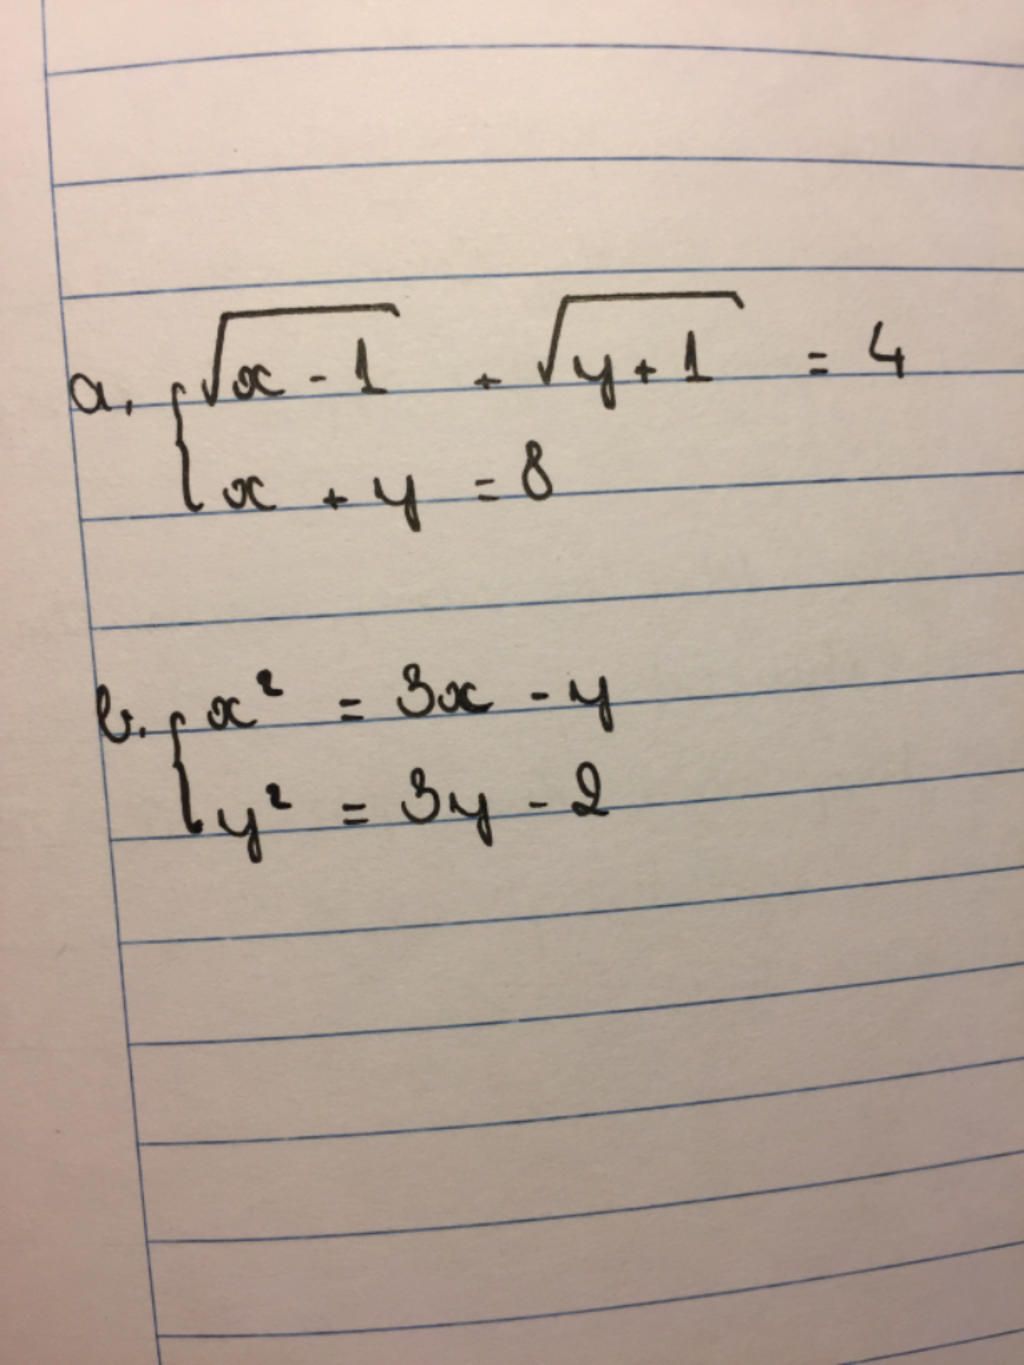 a. { √(x - 1) + √(y + 1) = 4
x + y = 8
b. { x² = 3x - y
y² = 3y - 2